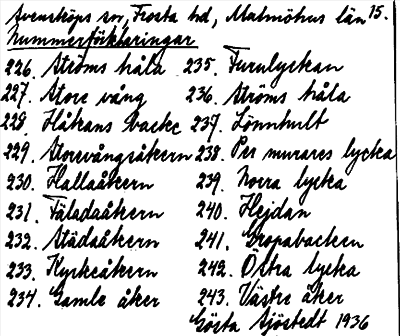 Svensköps sn, Frosta hd, Malmöhus län 15.
Nummerförklaringar
226. Ströms håla 235. Furulyckan
227. Store vång 236. Ströms håla
228. Håkans backe 237. Lönnhult
229. Storevångsåkern 238. Per murares lycka
230. Hallaåkern 239. Norra lycka
231. Fäladaåkern 240. Hejdan
232. Städaåkern 241. Gropabacken
233. Kyrkeåkern 242. Östra lycka
234. Gamle åker 243. Västre åker
Gösta Sjöstedt 1936